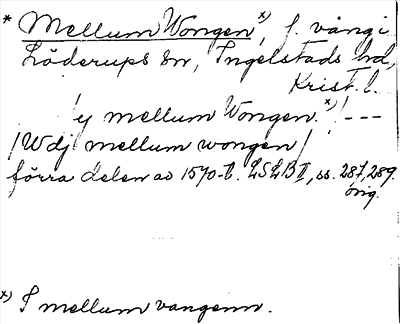 * Mellum Wongen x), f. vång i
Löderups sn, Ingelstads hd,
Krist. l.
/y mellum Wongen. x)/ ---
/Wdj mellum wongen/
förra delen av 1570-t. LSLB II, ss. 287, 289.
orig.
x) I mellum vangenn.